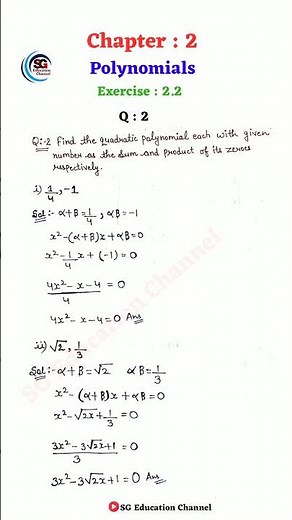 SG
Education
Channel
Chapter : 2
Polynomials
Exercise : 2.2
Q : 2
Q:-2 Find the quadratic polynomial each with given
number as the sum and product of its zeroes
respectively.
i) 1/4, -1
Sol:- α+β=1/4, αβ=-1
x²-(α+β)x+αβ=0
x²-1/4x+(-1)=0
4x²-x-4/4=0
4x²-x-4=0 Ans
ii) √2, 1/3
Sol:- α+β=√2 αβ=1/3
x²-(α+β)x+αβ=0
x²-√2x+1/3=0
3x²-3√2x+1/3=0
3x²-3√2x+1=0 Ans
SG Education Channel
SG Education Channel